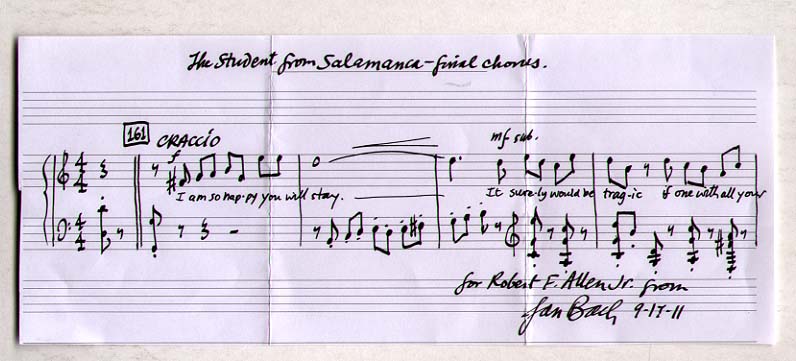 The Student from Salamanca - final chorus.
161 CRACCIO mf sub.
f
I am so hap-py you will stay. It sure-ly would be trag-ic if one with all your
for Robert F. Allen Jr. from
Jan Bach 9-17-11